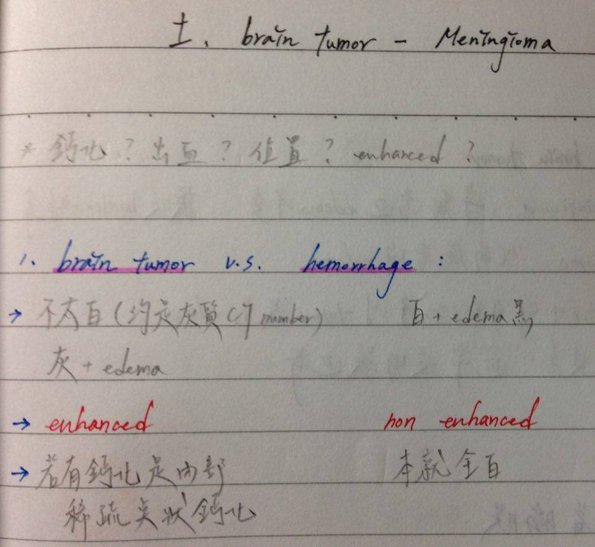 土、brain tumor - Meningioma
* 鈣化？出血？位置？enhanced？
1. brain tumor v.s. hemorrhage :
→ 不太白（約是灰質 CT number） 白 + edema 黑
灰 + edema
→ enhanced non enhanced
→ 若有鈣化是內部 本就全白
稀疏点狀鈣化